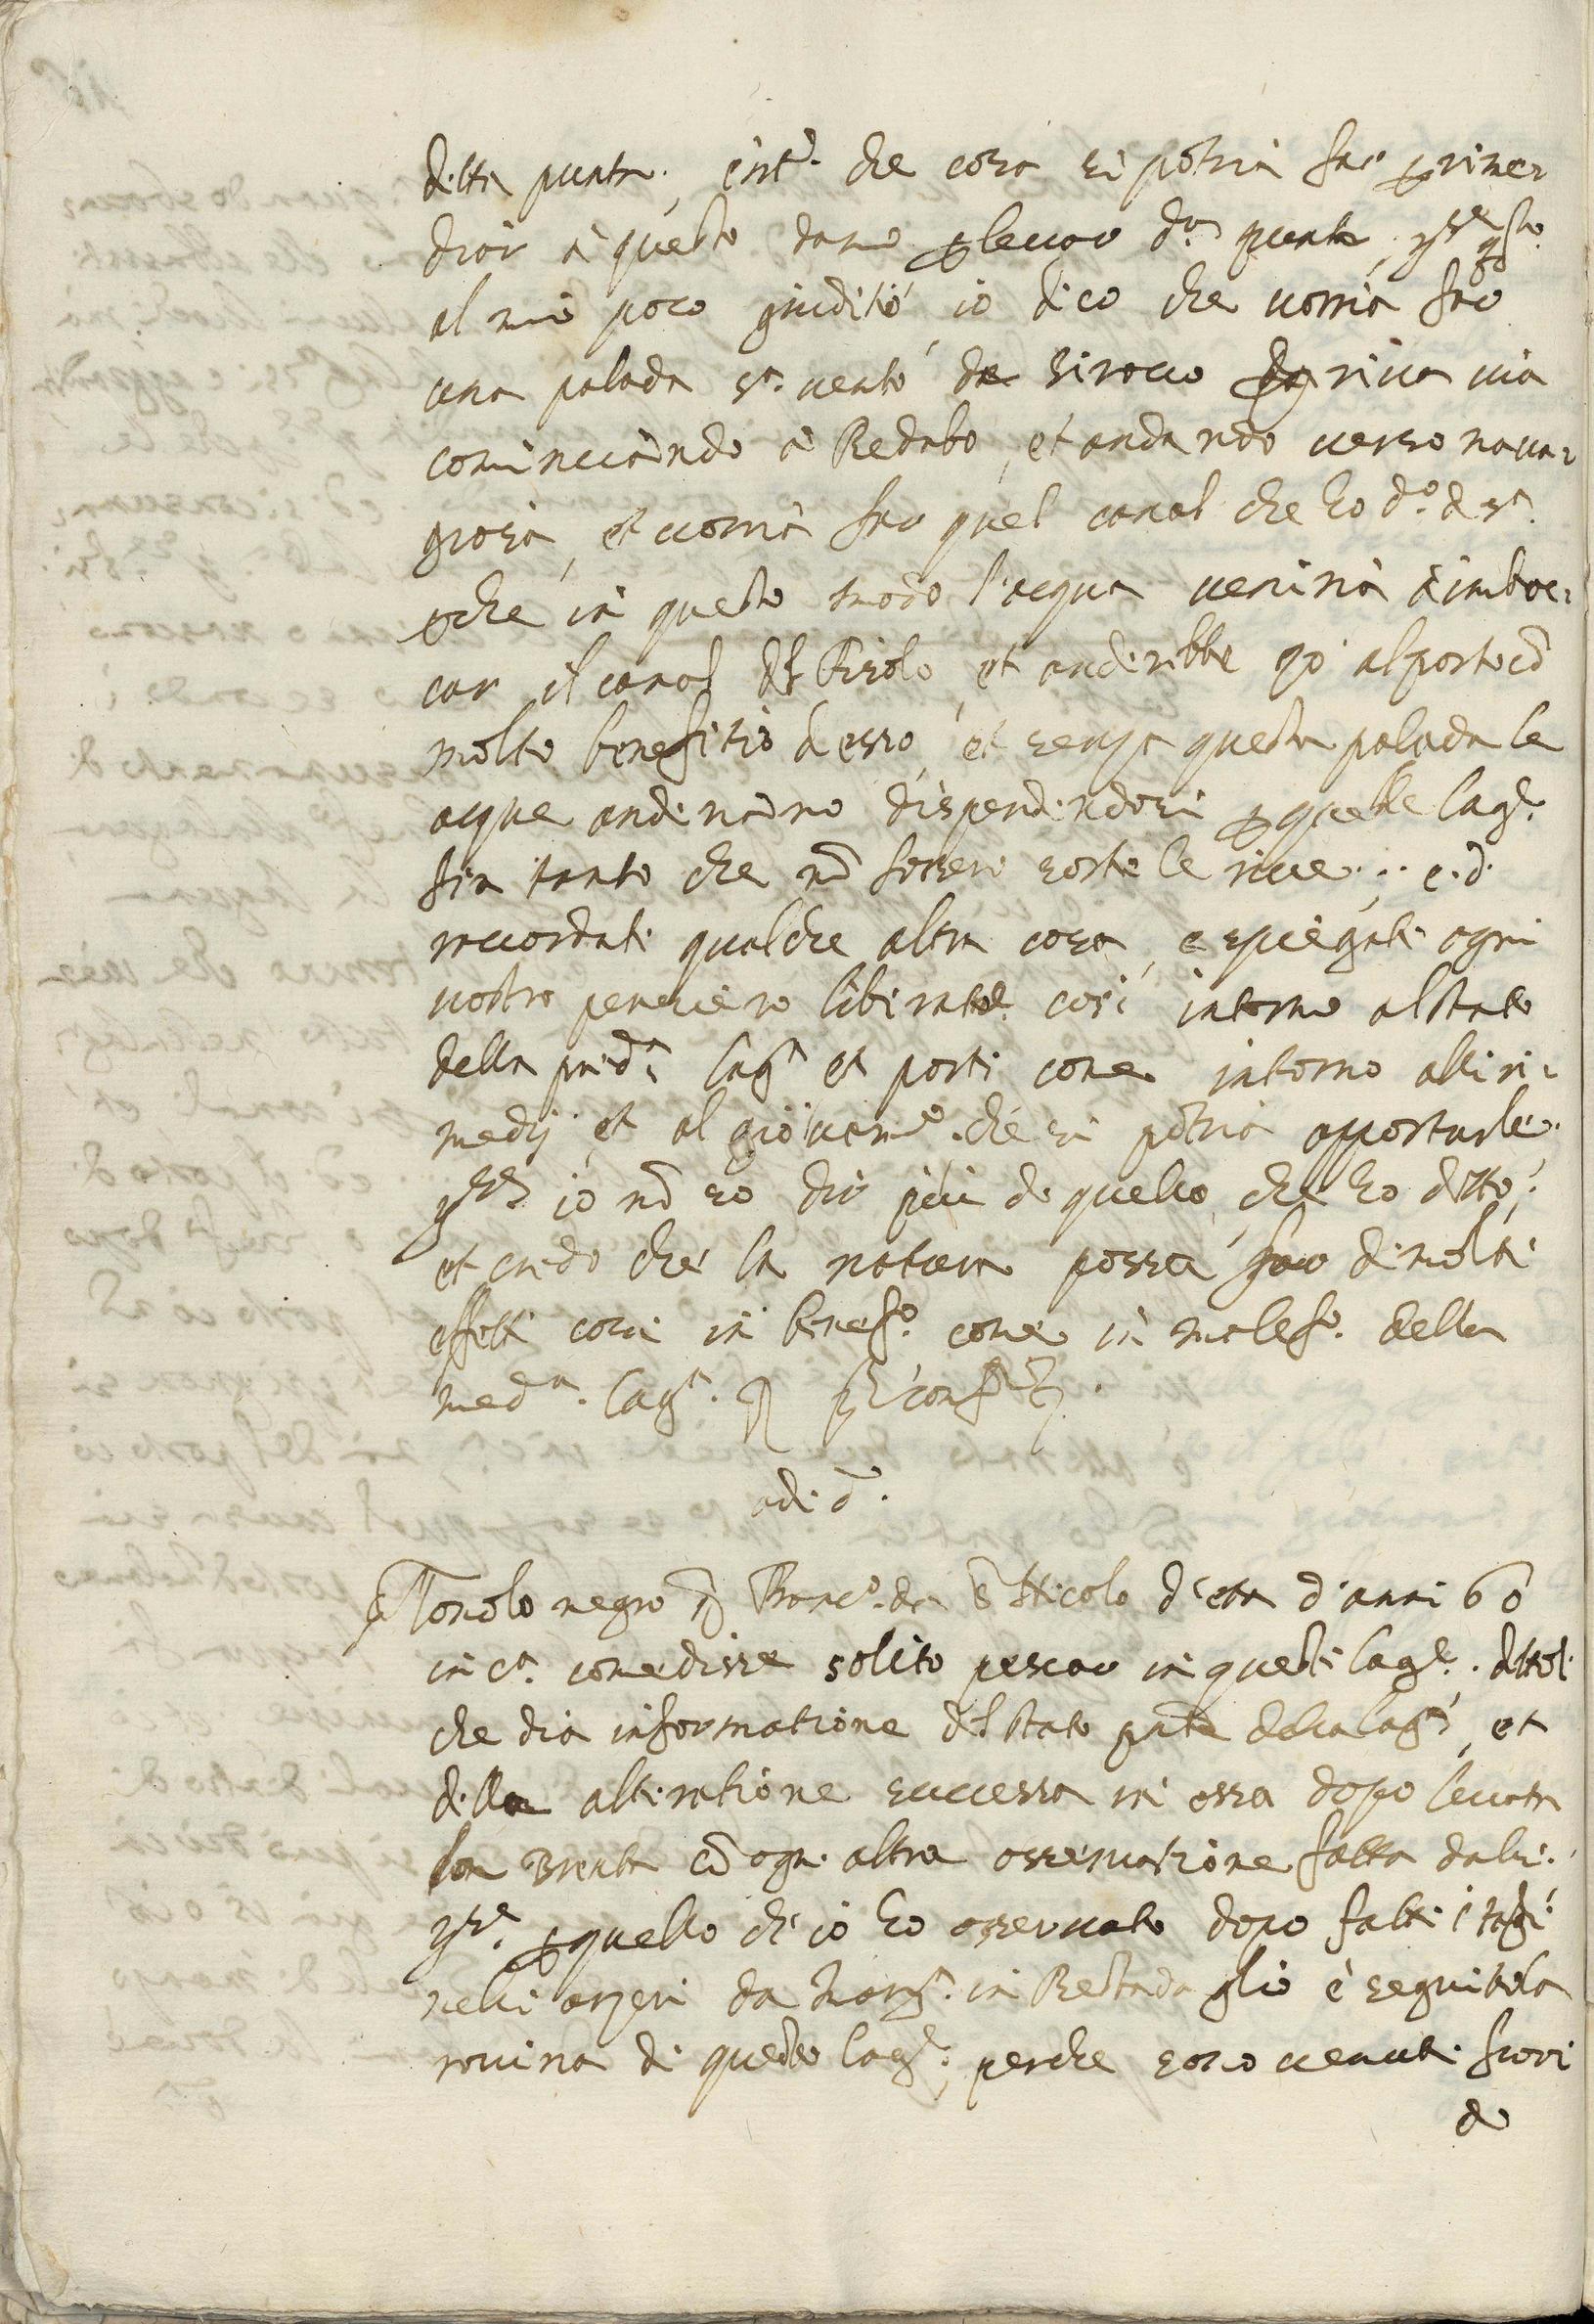 ditta punta, int.º che cosa si potria far p rime=
diar à questo dano p levar d.ª punta, r.se q.to
al mio poco giuditio, io dico che vorria far
una palada s.ª vento da Sirocco da riva via
cominciando à Redabo, et andando verso nava=
grosa, et vorria far quel canal che ho d.º d s.ª
pche in questo modo l'acqua veniria à imboc=
car il canal del Pirolo, et anderebbe poi al porto cõ
molto benefitio d esso, et senza questa palada le
acque anderiano dispendendosi p quelle lag.e
sin tanto che nõ fossero soste le rive. e. d.
raccordati qualche altra cosa, e spiegati ogni
vostro pensiero liberate. cosi intorno al stato
della pred.ª lag.ª et porti come intorno alli ri=
medij, et al giovam.º che si potria apportarle.
r.se io nõ so dir più de quello, che ho ditto,
et credo che la natura possa far di molti
effetti cosi in benef.º come in malef.º della
med.ª lag.ª
adi d.º
Tonolo negro q Franc.º da S Nicolo d'eta d'anni 60
in c.ª come disse solito pescar in questi lag.e. dittoli
che dia informatione del stato pnte della lag.ª, et
della alteratione successa in essa dopo levata
la Brenta cõ ogn. altra osservatione fatta da lui.
r.se p quello ch' io ho osservato dopo fatti i tagi
nelli arzeri da Marg.ª in Bottada glie è seguito la
rovina di questo lag.e, perche sono venuti fuori
de